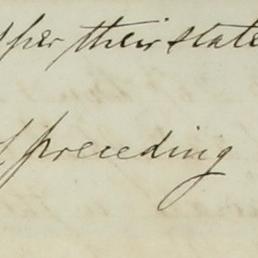 per their state
preceding